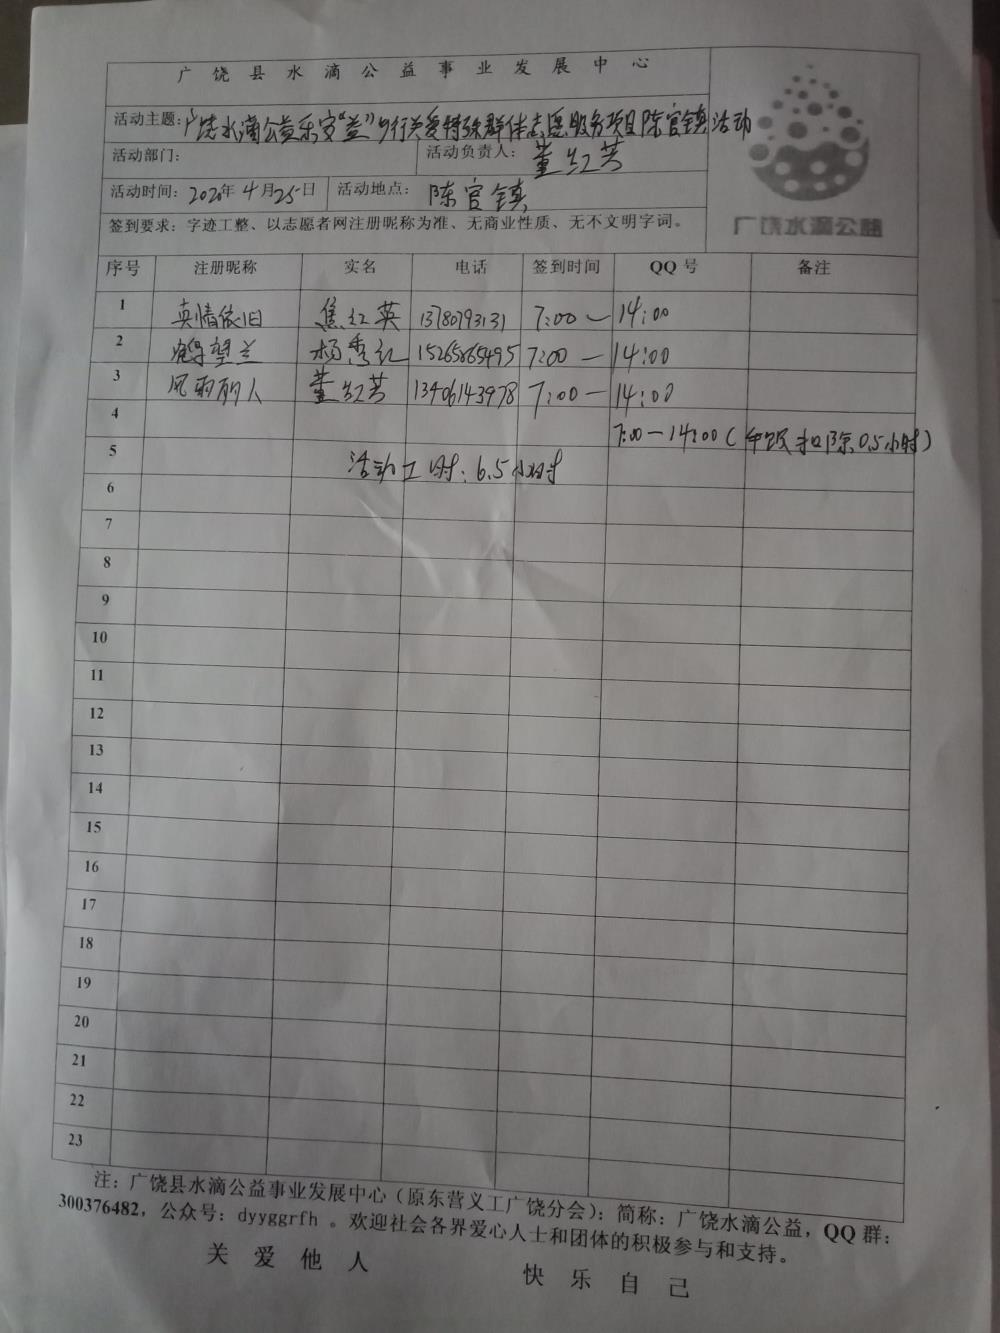 广饶县水滴公益事业发展中心
活动主题:广饶水滴公益乐安“益”行关爱特殊群体志愿服务项目陈官镇活动
活动部门: 活动负责人:董红芸
活动时间:2020年4月25日 活动地点: 陈官镇
签到要求:字迹工整、以志愿者网注册昵称为准、无商业性质、无不文明字词。
广饶水滴公益
序号 注册昵称 实名 电话 签到时间 QQ号 备注
1 真情依旧 焦红英 13780793131 7:00— 14:00
2 望兰 杨秀红 15265865495 7:00— 14:00
3 风雨丽人 董红芸 13406143978 7:00— 14:00
4 7:00—14:00(午饭扣除0.5小时)
5 活动工时:6.5小时
6
7
8
9
10
11
12
13
14
15
16
17
18
19
20
21
22
23
注:广饶县水滴公益事业发展中心(原东营义工广饶分会);简称:广饶水滴公益,QQ群:
300376482,公众号:dyyggrfh。欢迎社会各界爱心人士和团体的积极参与和支持。
关爱他人 快乐自己